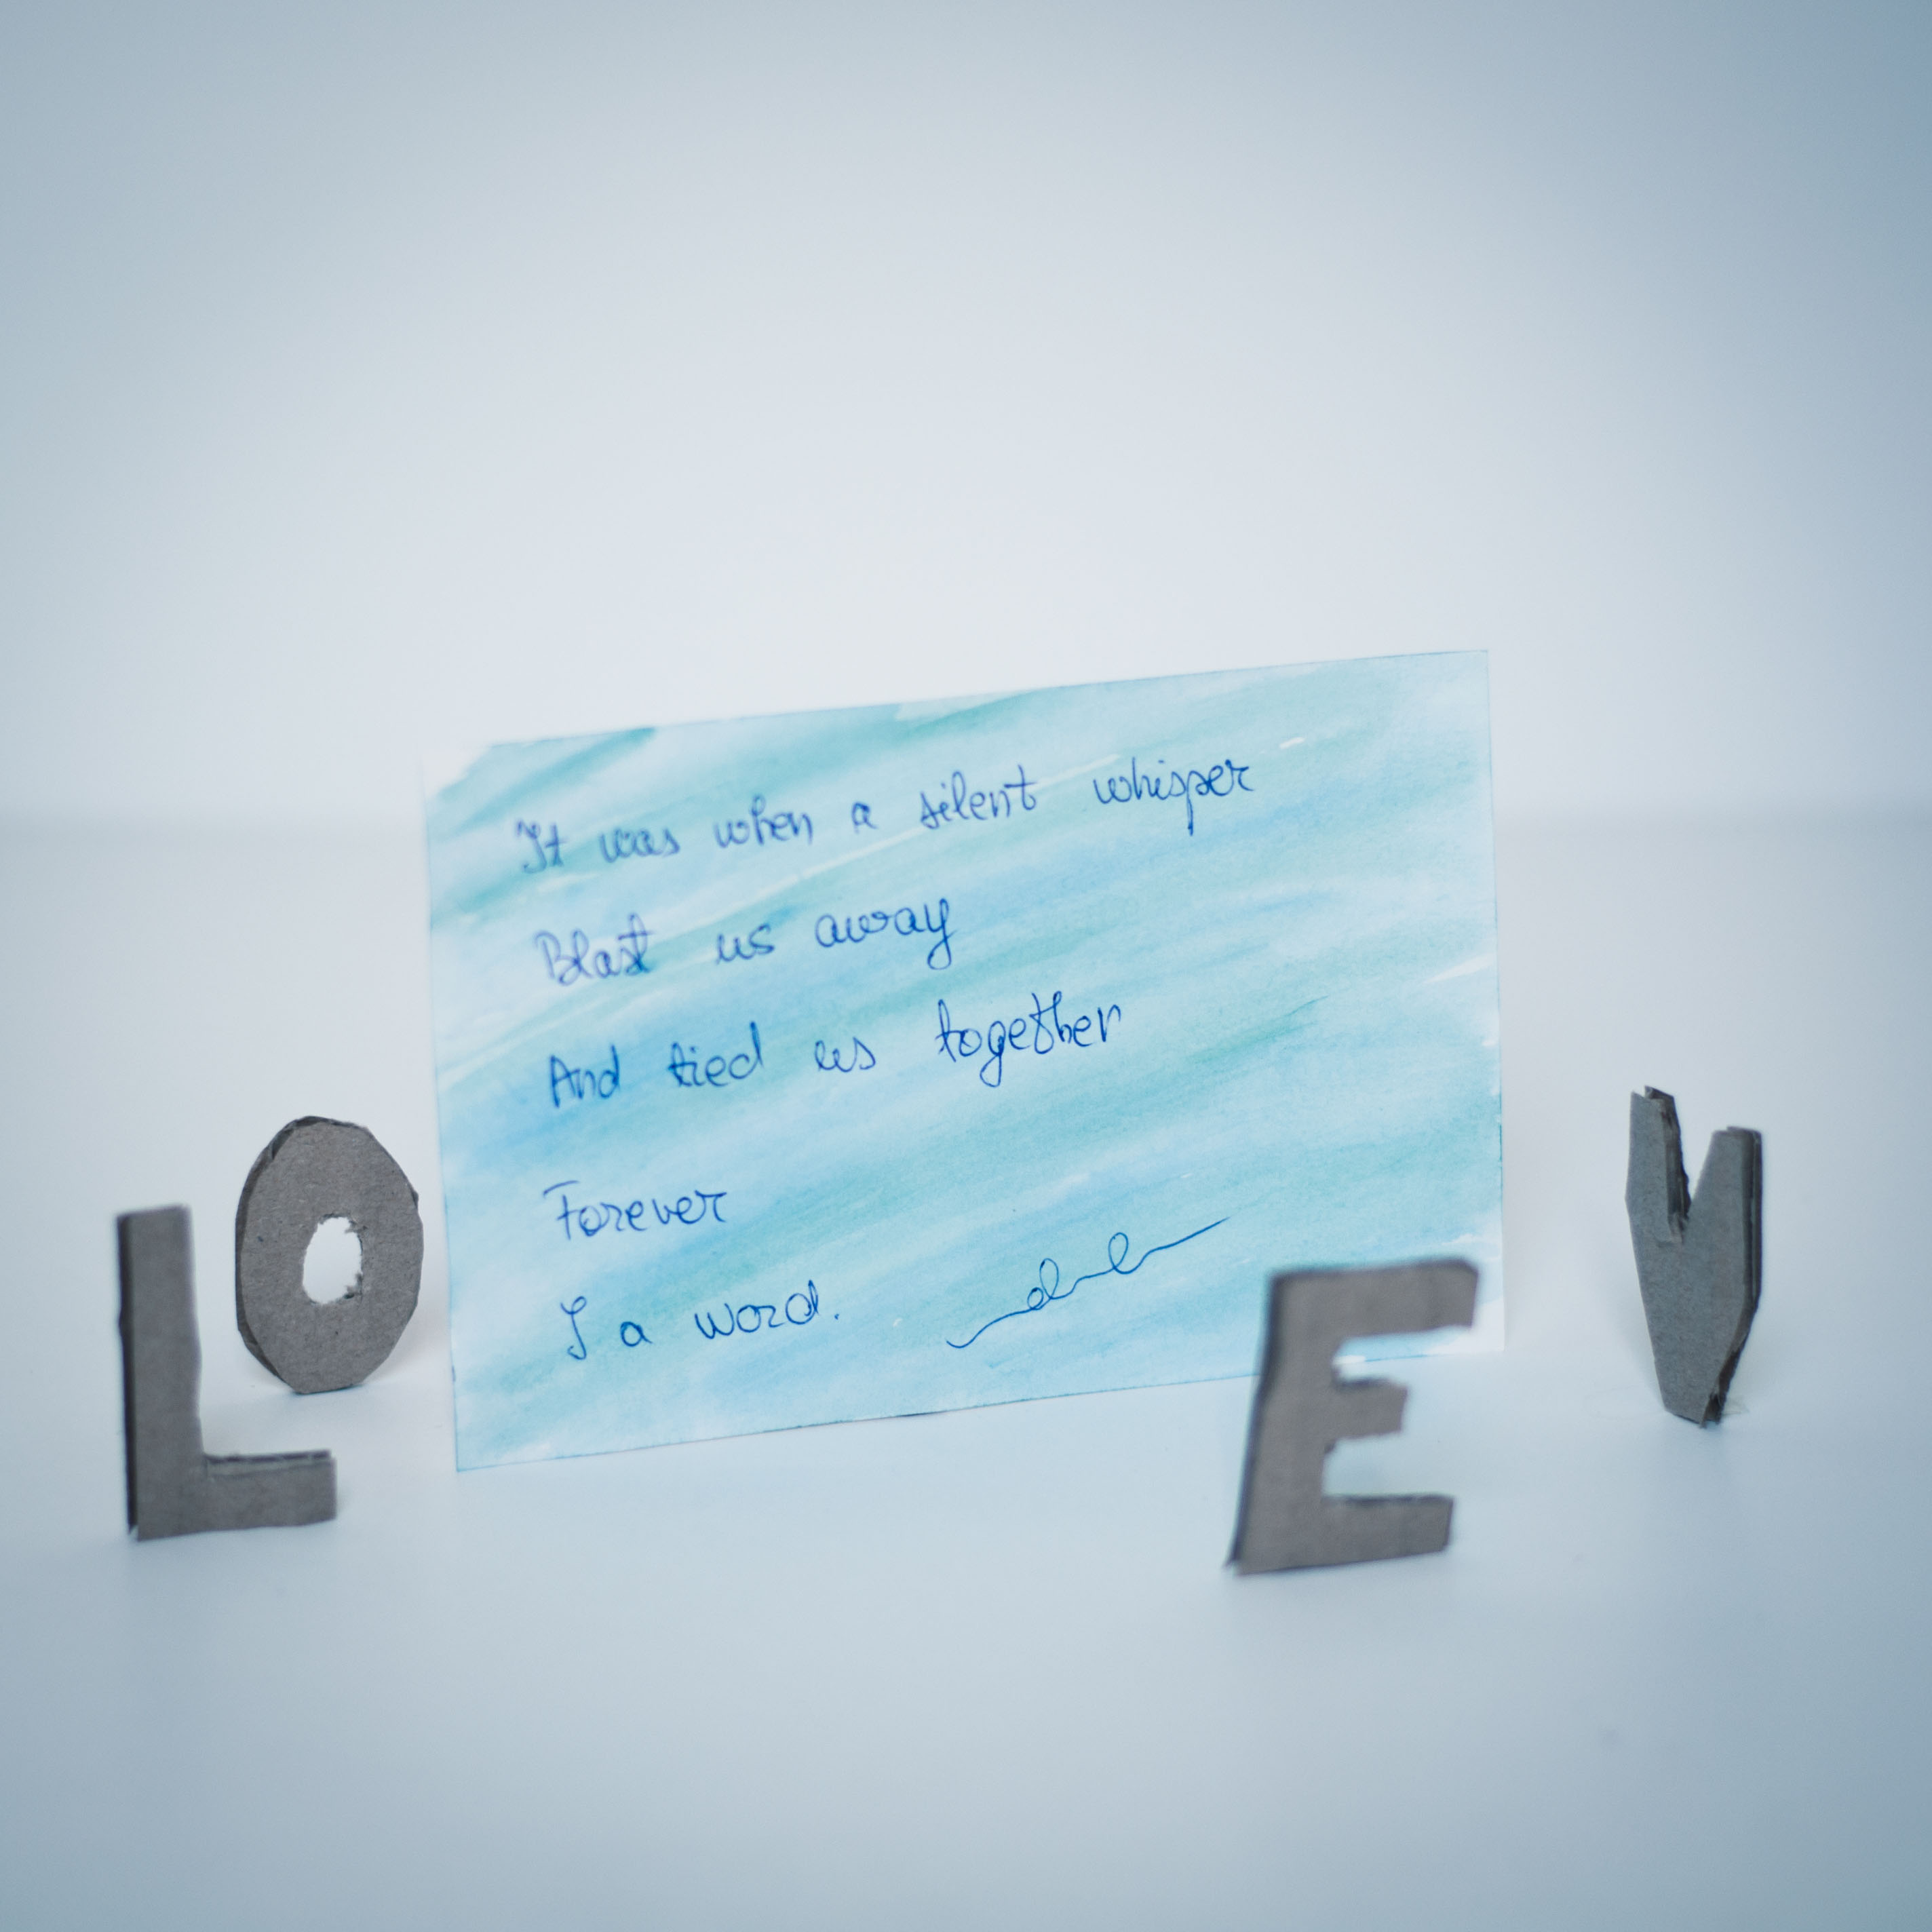 It was when a silent whisper
Blast us away
And tied us together
Forever
I a word.
L O E V